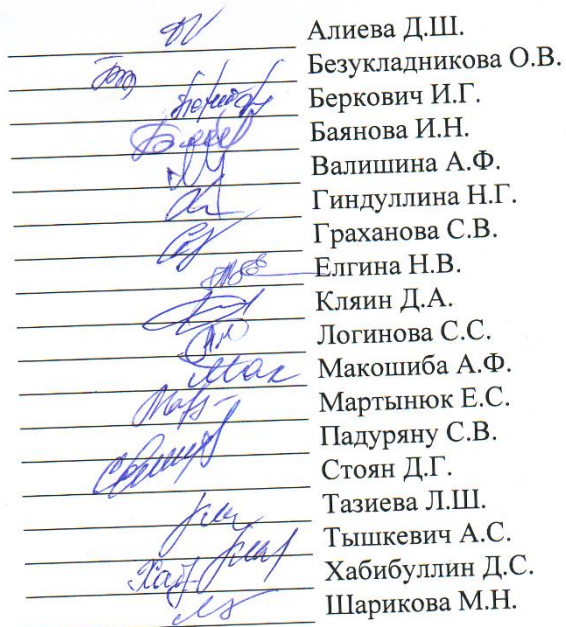 Алиева Д.Ш.
Безукладникова О.В.
Беркович И.Г.
Баянова И.Н.
Валишина А.Ф.
Гиндуллина Н.Г.
Граханова С.В.
Елгина Н.В.
Кляин Д.А.
Логинова С.С.
Мак Макошиба А.Ф.
Мартынюк Е.С.
Падуряну С.В.
Стоян Д.Г.
Тазиева Л.Ш.
Тышкевич А.С.
Хабибуллин Д.С.
Шарикова М.Н.